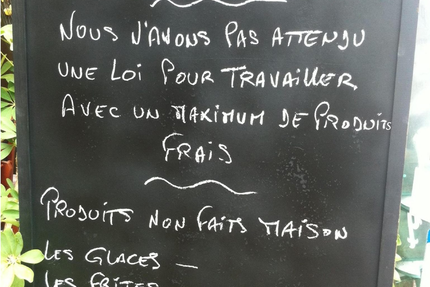 NOUS N'AVONS PAS ATTENDU
UNE LOI POUR TRAVAILLER
AVEC UN MAXIMUM DE PRODUITS
FRAIS
PRODUITS NON FAITS MAISON
LES GLACES —
LES FRITES